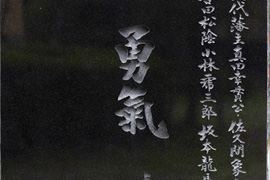 代藩主真田幸貫公 佐久間象
田松陰 小林虎三郎 坂本龍馬
勇氣